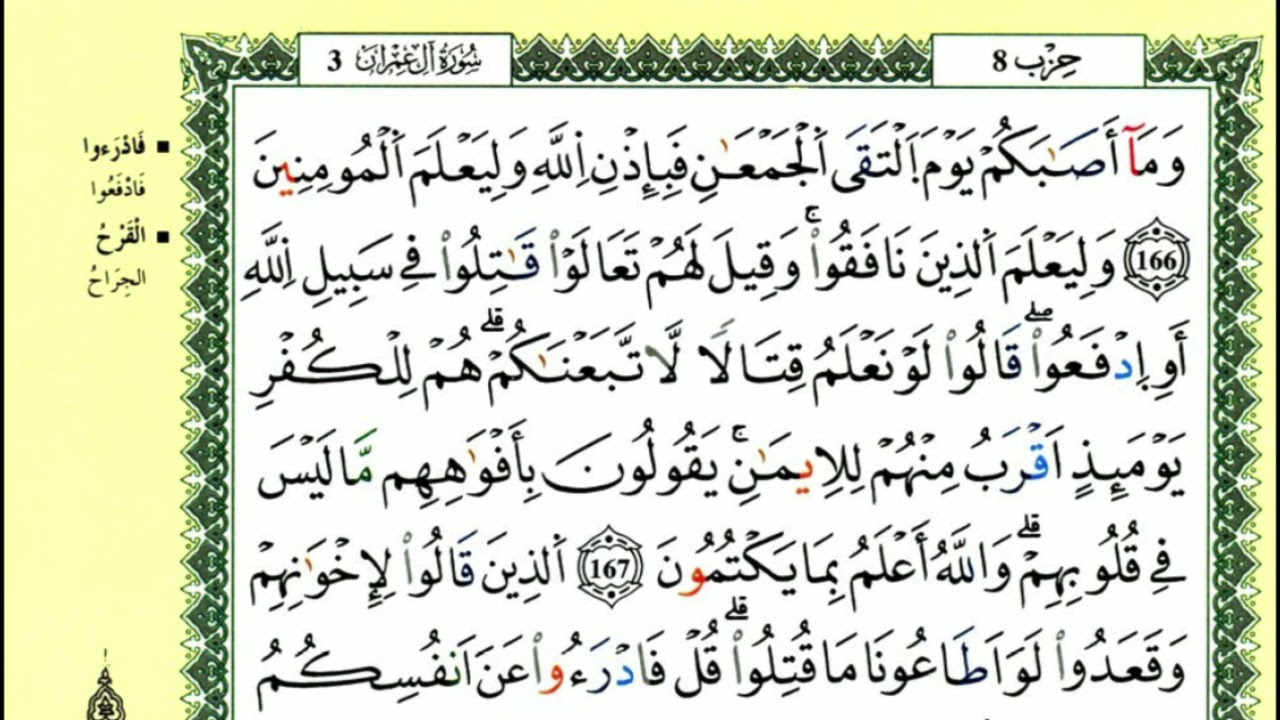 حِزْب 8
سُورَةُ آلِ عِمْرَان 3
وَمَآ أَصَٰبَكُمْ يَوْمَ اَ۬لْتَقَى اَ۬لْجَمْعَٰنِ فَبِإِذْنِ اِ۬للَّهِ وَلِيَعْلَمَ اَ۬لْمُومِنِينَ
166 وَلِيَعْلَمَ اَ۬لذِينَ نَافَقُواْۖ وَقِيلَ لَهُمْ تَعَالَوْاْ قَٰتِلُواْ فِے سَبِيلِ اِ۬للَّهِ
أَوِ اِ۪دْفَعُواْۖ قَالُواْ لَوْ نَعْلَمُ قِتَالاٗ لَّاتَّبَعْنَٰكُمْۖ هُمْ لِلْكُفْرِ
يَوْمَئِذٍ اَقْرَبُ مِنْهُمْ لِلِايمَٰنِۚ يَقُولُونَ بِأَفْوَٰهِهِم مَّا لَيْسَ
فِے قُلُوبِهِمْۖ وَاللَّهُ أَعْلَمُ بِمَا يَكْتُمُونَ 167 اَ۬لذِينَ قَالُواْ لِإِخْوَٰنِهِمْ
وَقَعَدُواْ لَوَ اَطَاعُونَا مَا قُتِلُواْۖ قُلْ فَادْرَءُواْ عَنَ اَنفُسِكُمُ
فَادْرَءوا
فَادْفَعُوا
الْقَرْحُ
الجِرَاحُ